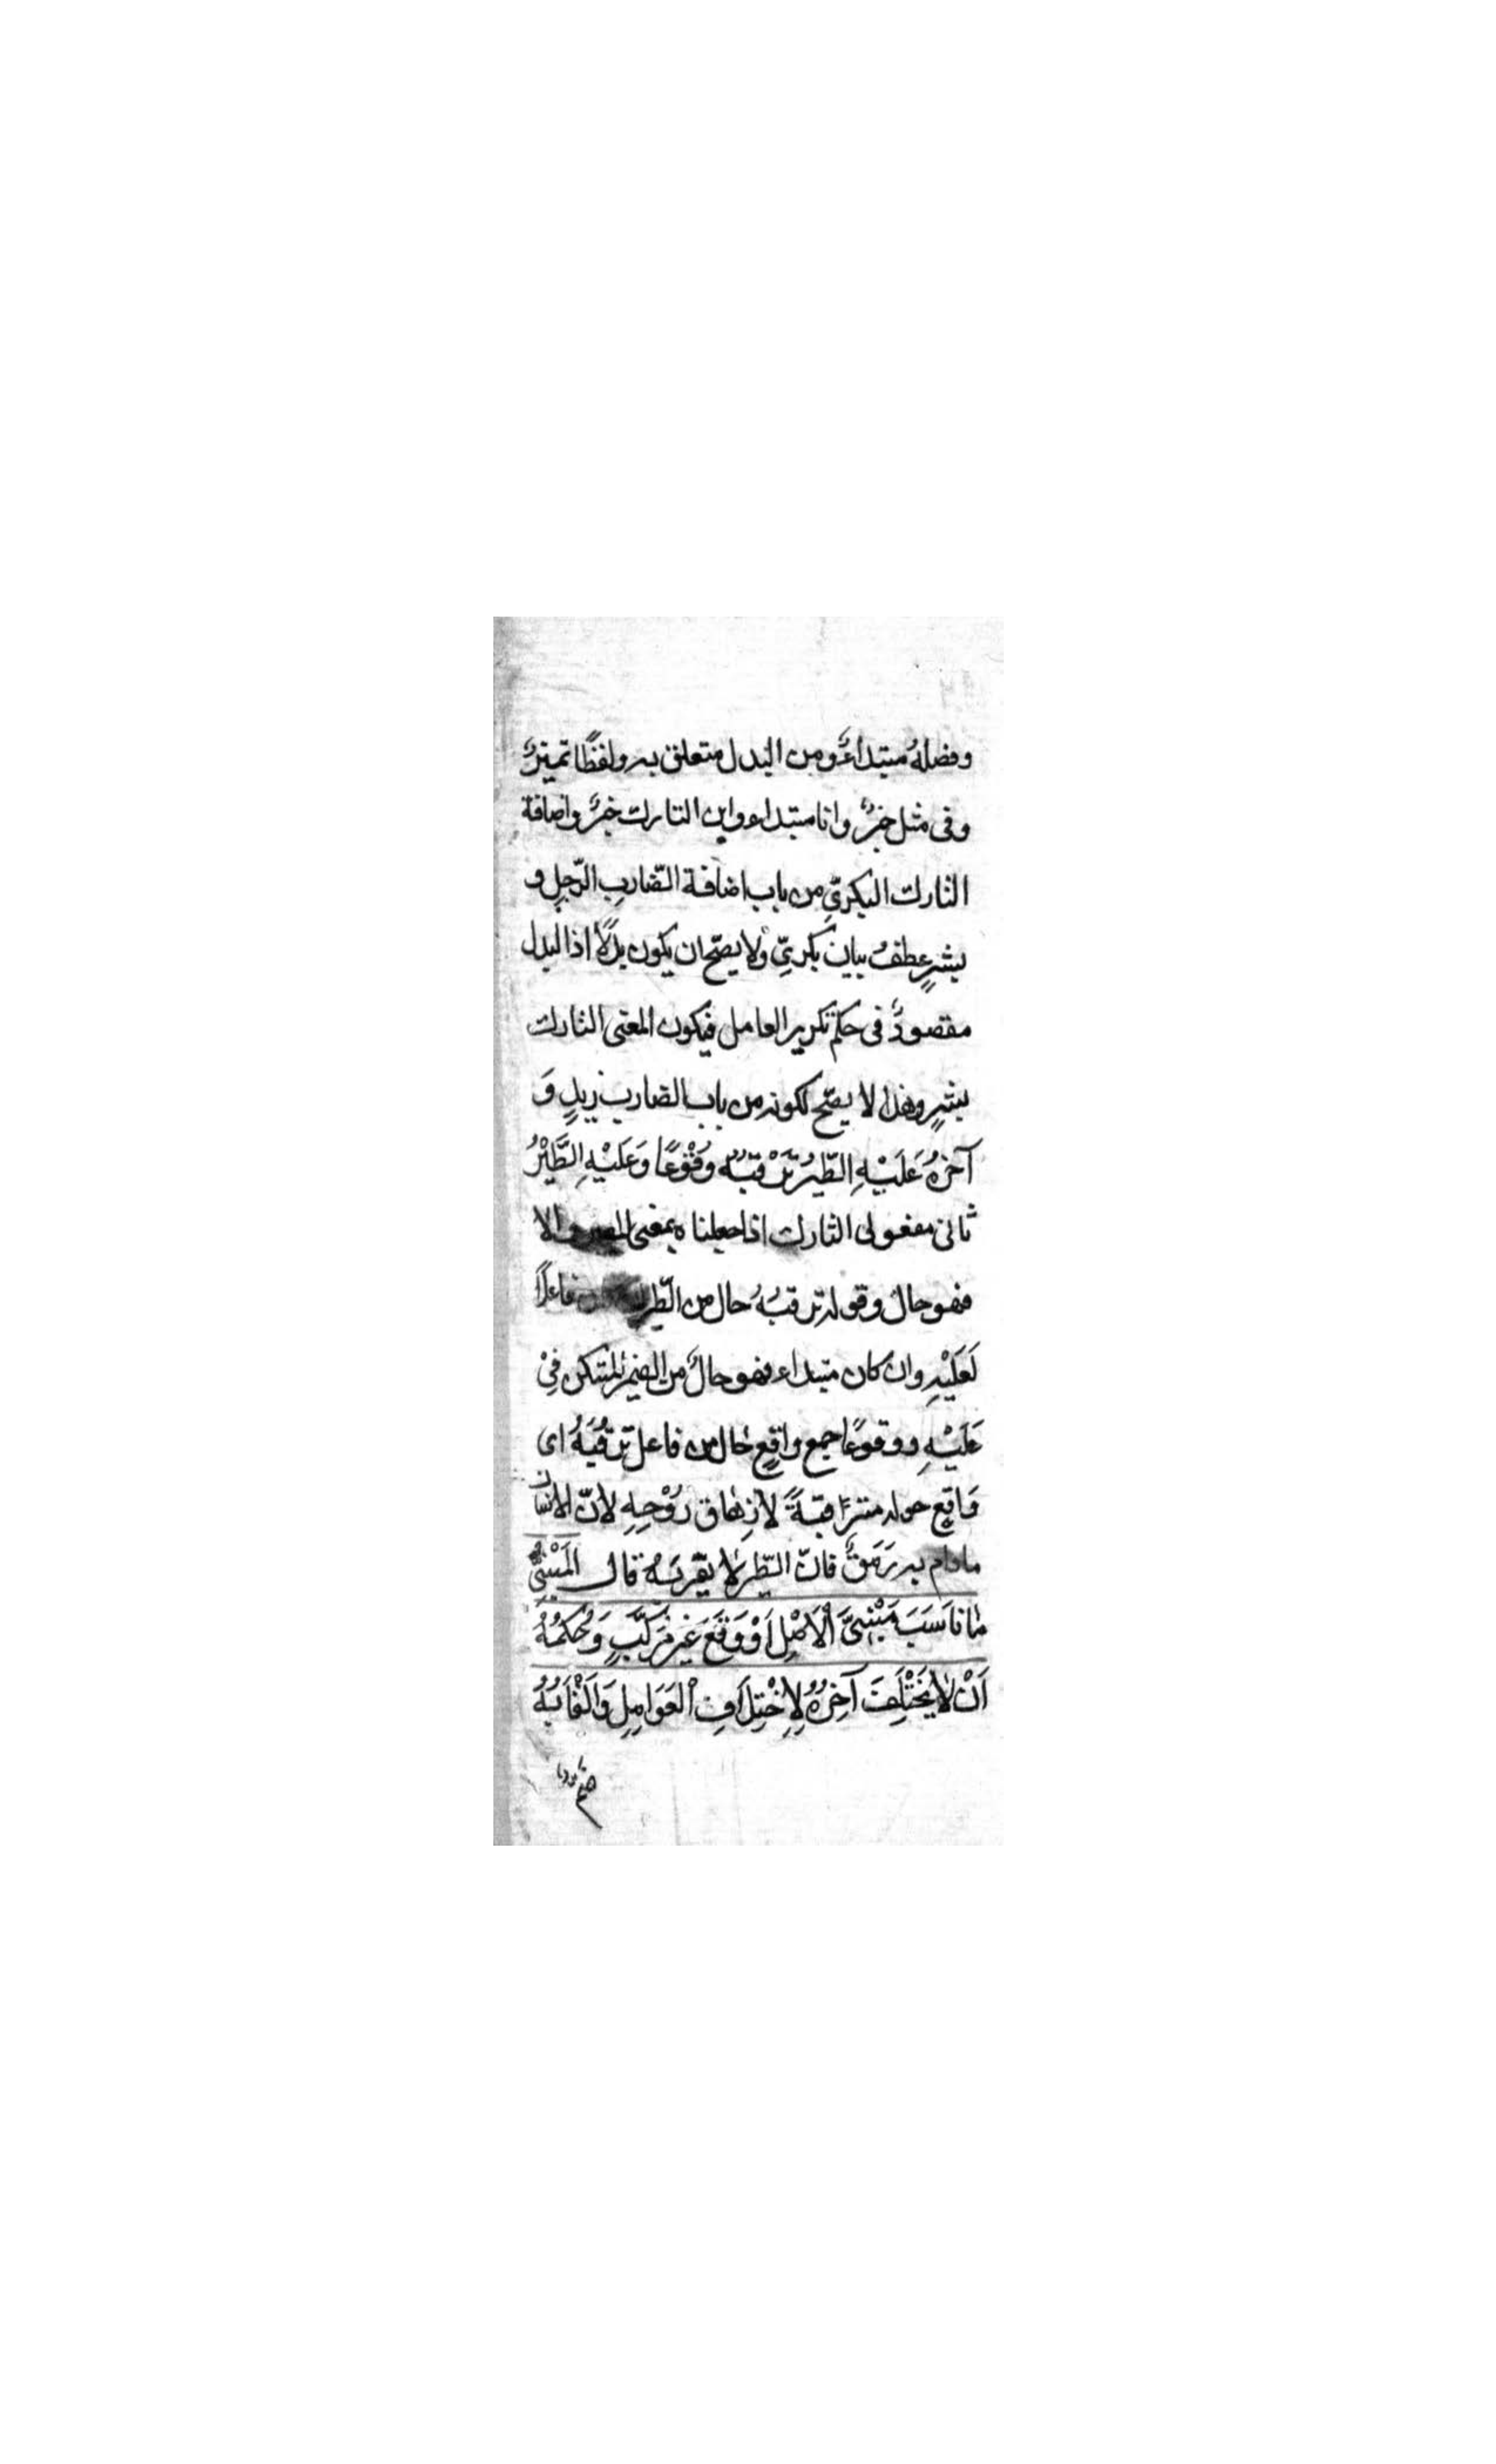 وفصلهُ مبتداءٌ ومن البدل متعلق به ولفظًا تميزٌ
وفى مثل خبرٌ وانا مبتداء وابن التارك خبرٌ واضافة
التارك البكرىِّ من باب اضافة الضّاربِ الرّجلِ و
بشرٍ عطفُ بيان بكرىٍّ ولا يصحّ ان يكون بدلًا اذا لبدل
مقصودٌ فى حكم تكرير العامل فيكون المعنى التارك
بشرٍ وهذا لا يصحّ لكونه من باب الضارب زيدٍ وَ
آخرهُ عَلَيْهِ الطّيرُ تَرْقبُهُ وُقْوُعًا وَعَلَيْهِ الطَّيْرُ
ثانى مفعولى التارك اذا جعلناه بمعنى المصير والا
فهو حال وقوله ترقبُهُ حال من الطّير فاعلًا
لَعَلَيْهِ وان كان مبتداء فهو حالٌ من الضمير المستكن فِىْ
عَلَيْهِ ووقوعًا جمع واقِعٍ حال من فاعل ترقُبُهُ اى
وَاقِعٍ حوله مترقبةً لازهاق رُوْحِهِ لانّ الانسان
مادام به رَمَقٌ فانّ الطّير لا يقربهُ قال المَبْنِىُّ
مٰا نٰاسَبَ مَبْنِىَّ الْاَصْلِ اَوْ وَقَعَ غَيْرَ مُرَكَّبٍ وَحُكمُهُ
اَنْ لٰا يَخْتَلِفَ آخِرُهُ لِاِخْتِلَافِ الْعَوَامِلِ وَاَلْقٰابُهُ
ضمٌّ